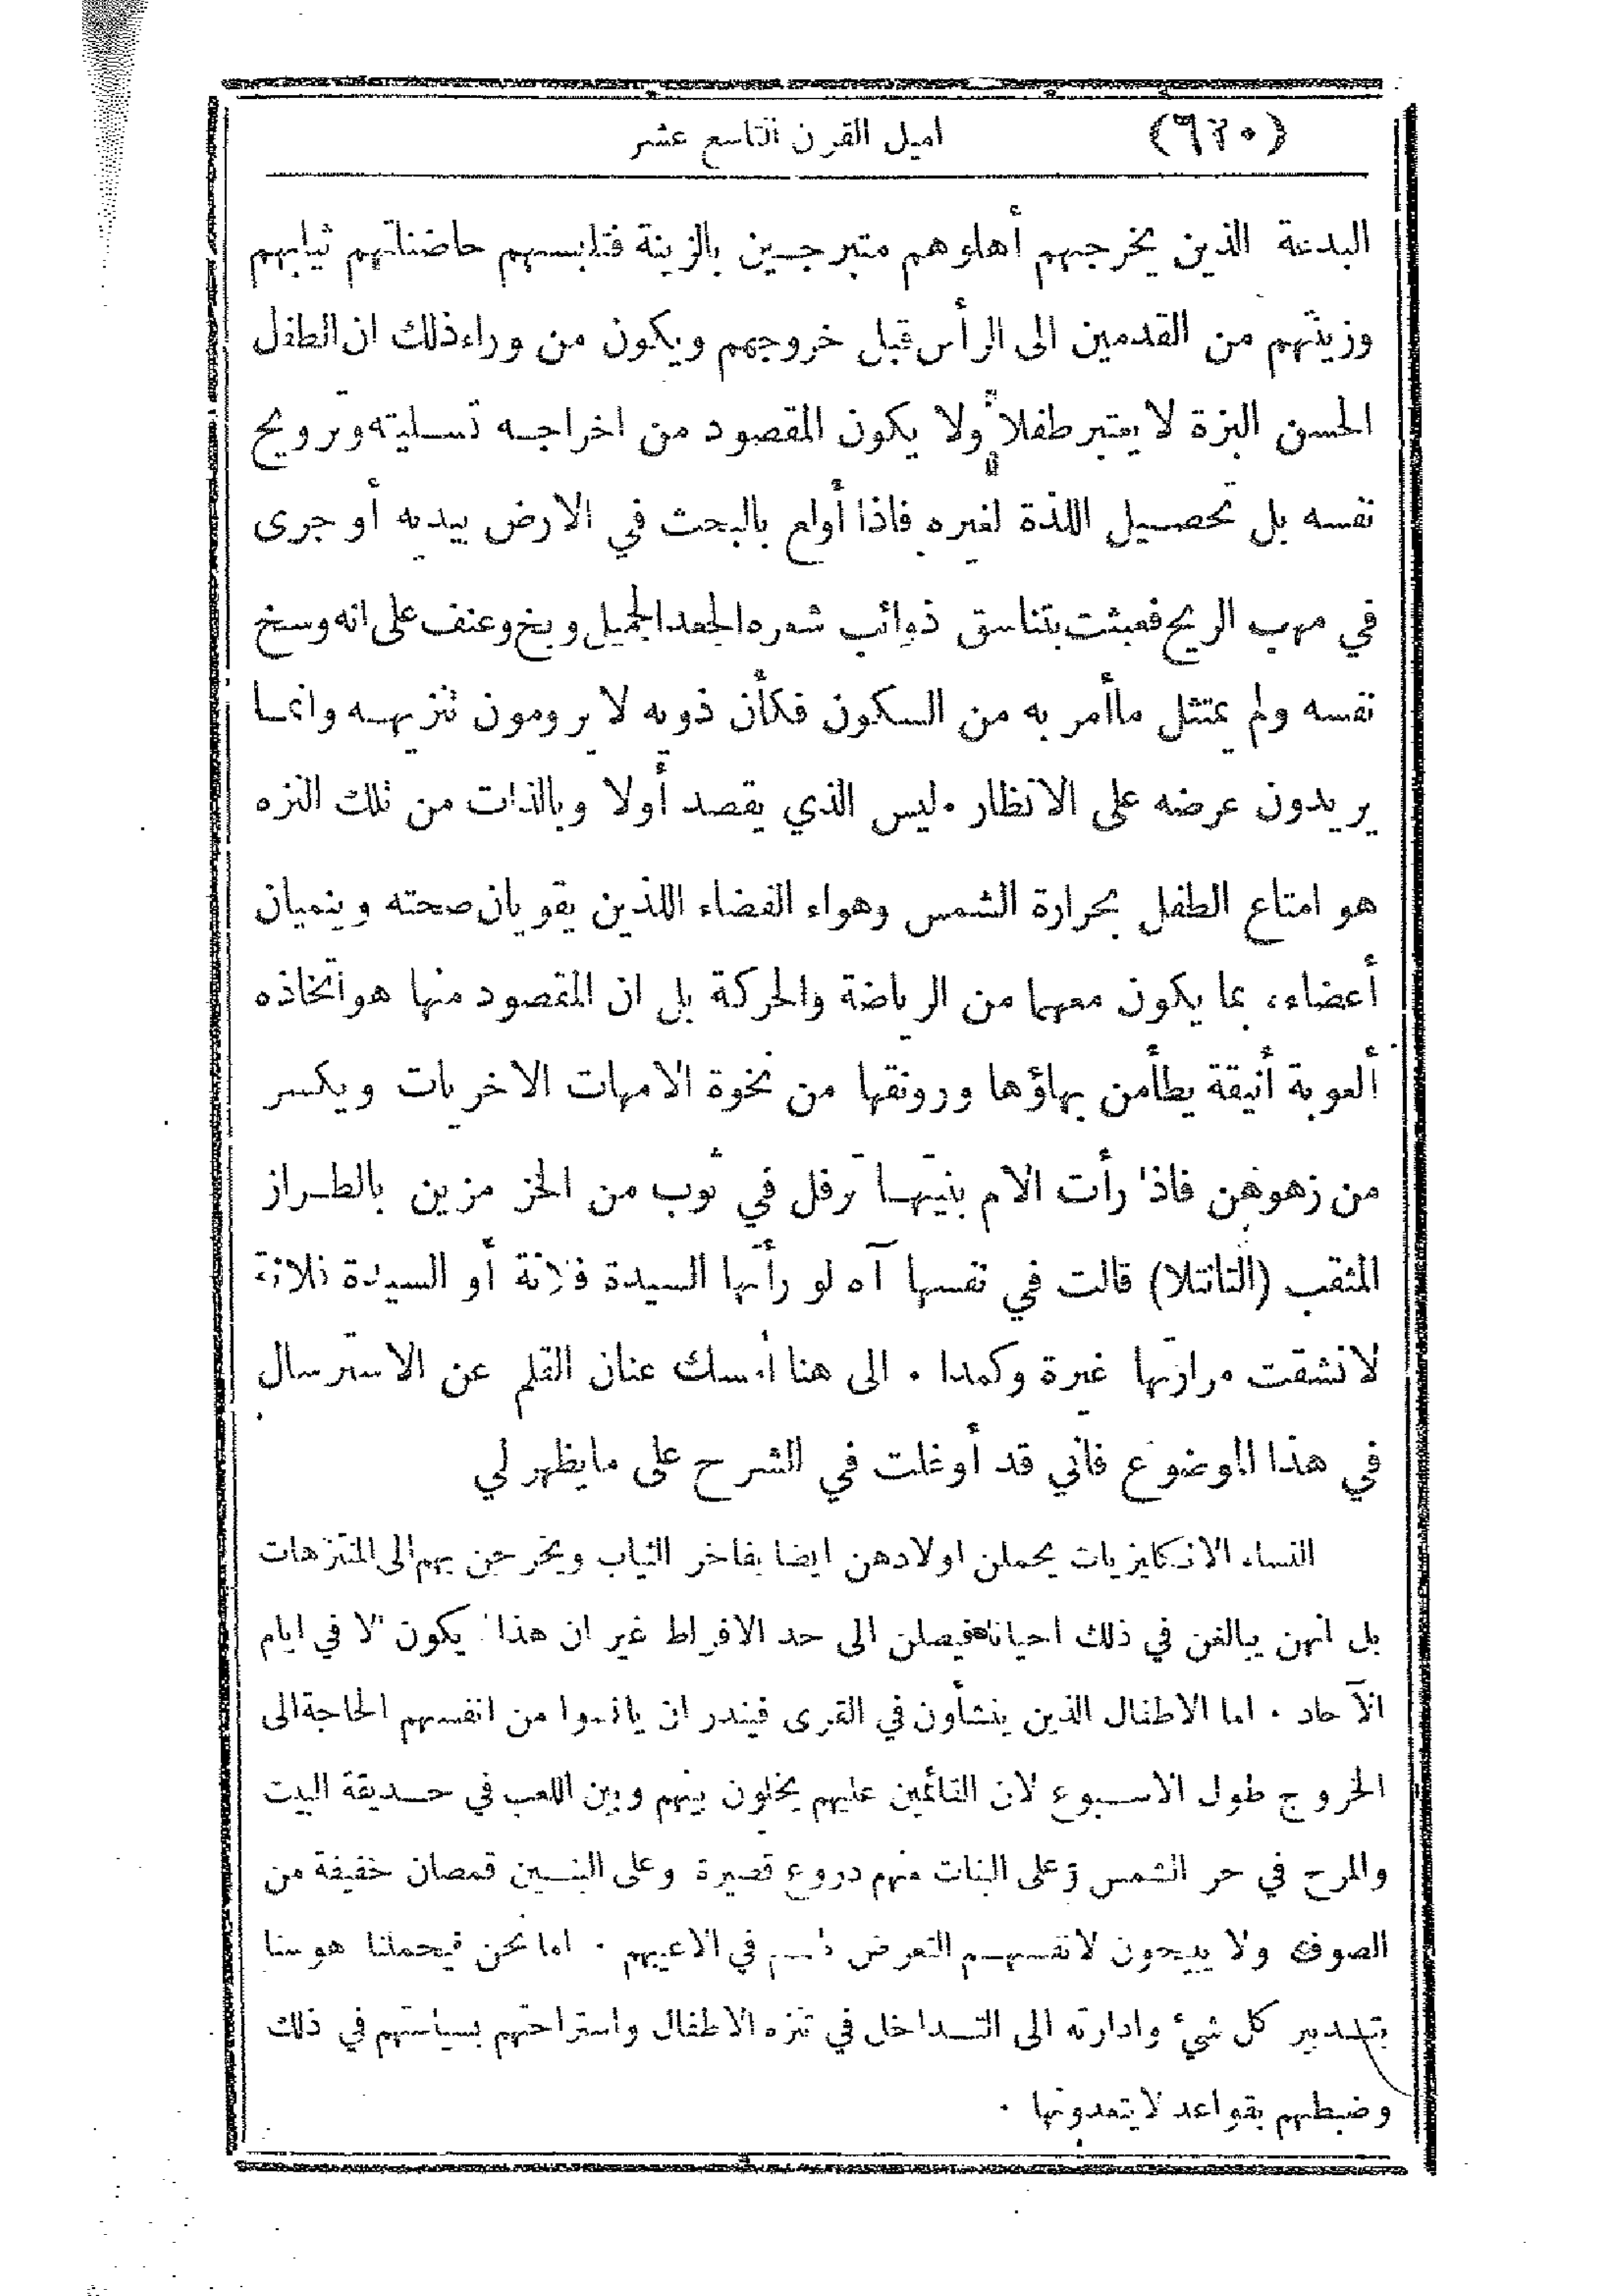 (٩٢٠) اميل القرن التاسع عشر
البدعة الذين يخرجهم أهلوهم متبرجين بالزينة فتلبسهم حاضناتهم ثيابهم
وزينتهم من القدمين الى الرأس قبل خروجهم ويكون من وراء ذلك ان الطفل
الحسن البزة لا يعتبر طفلاً ولا يكون المقصود من اخراجه تسليته وترويح
نفسه بل تحصيل اللذة لغيره فاذا أولع بالبحث في الارض بيديه أو جرى
في مهب الريح فعبثت بتناسق ذوائب شعره الجعد الجميل وبخ وعنف على انه وسخ
نفسه ولم يمتثل ماأمر به من السكون فكأن ذويه لا يرومون تنزيهه وانما
يريدون عرضه على الانظار . ليس الذي يقصد أولا وبالذات من تلك النزه
هو امتاع الطفل بحرارة الشمس وهواء الفضاء اللذين يقويان صحته وينميان
أعضاءه بما يكون معهما من الرياضة والحركة بل ان المقصود منها هو اتخاذه
ألعوبة أنيقة يطأمن بهاؤها ورونقها من نخوة الامهات الاخريات ويكسر
من زهوهن فاذا رأت الام بنيتها ترفل في ثوب من الخز مزين بالطراز
المثقب (التانتلا) قالت في نفسها آه لو رأتها السيدة فلانة أو السيدة فلانة
لانشقت مرارتها غيرة وكمدا . الى هنا أمسك عنان القلم عن الاسترسال
في هذا الموضوع فاني قد أوغلت في الشرح على مايظهر لي
النساء الانكليزيات يحملن اولادهن ايضا بفاخر الثياب ويخرجن بهم الى المتنزهات
بل انهن يبالغن في ذلك احيانا فيصلن الى حد الافراط غير ان هذا يكون الا في ايام
الآحاد . اما الاطفال الذين ينشأون في القرى فيندر ان يانسوا من انفسهم الحاجة الى
الخروج طول الاسبوع لان القائمين عليهم يخلون بينهم وبين اللعب في حديقة البيت
والمرح في حر الشمس وعلى البنات منهم دروع قصيرة وعلى البنين قمصان خفيفة من
الصوف ولا يبيحون لانفسهم التعرض لهم في الاعيبهم . اما نحن فيحملنا هوسنا
بتدبير كل شيء وادارته الى التداخل في تنزه الاطفال واستراحتهم بسياستهم في ذلك
وضبطهم بقواعد لا يتعدونها .